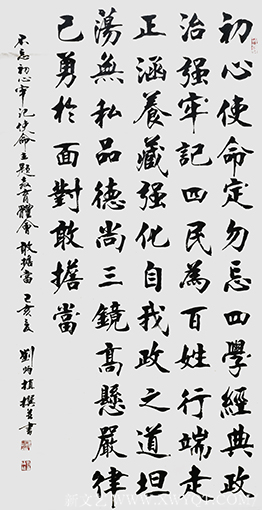 初心使命定勿忘四學經典政
治强牢記四民為百姓行端走
正涵養藏强化自我政之道坦
蕩無私品德尚三鏡高懸嚴律
己勇於面對敢擔當
不忘初心牢記使命主題教育體會 敢擔當 己亥夏 劉均植撰並書